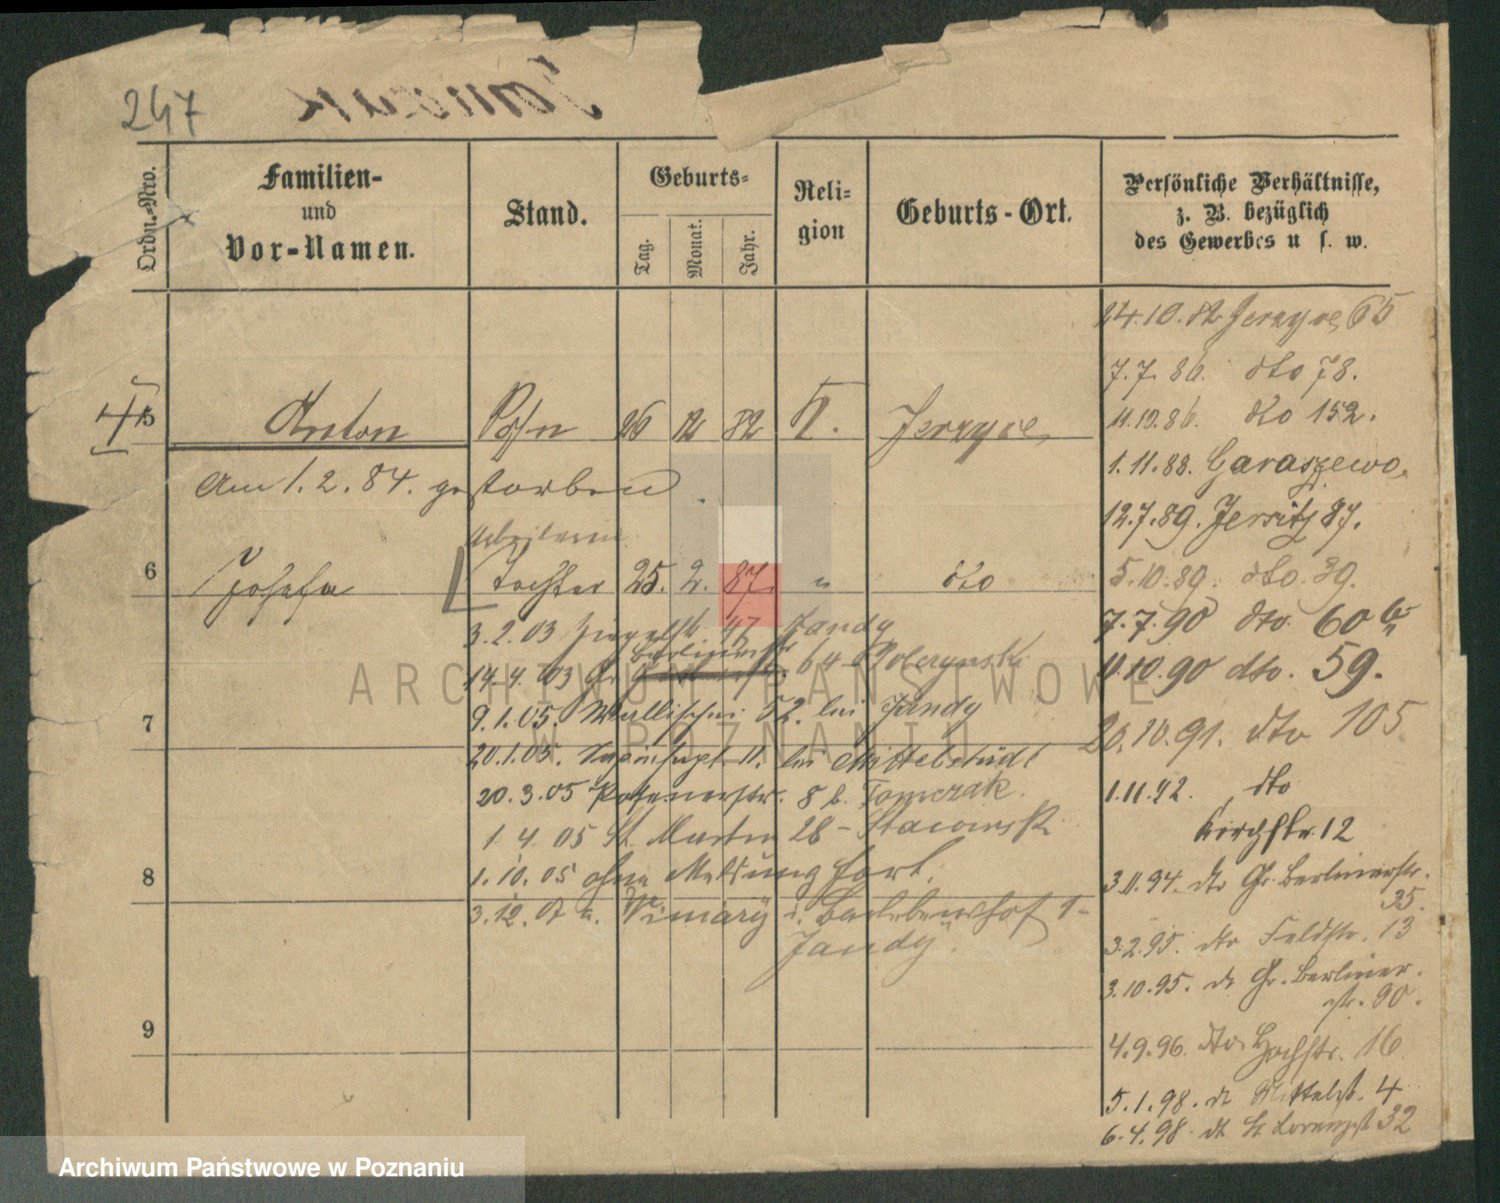 247
Ordn.-Nro.
Familien-
und
Vor-Namen.
Stand.
Geburts-
Tag.
Monat.
Jahr.
Reli-
gion
Geburts-Ort.
Persönliche Verhältnisse,
z. B. bezüglich
des Gewerbes u. s. w.
5 Anton Sohn 26 12 82 K. Jerzyce
Am 1.2.84. gestorben.
Arbeiterin
6 Josefa Tochter 25. 2. 87. " dto
3.2.03 47 Jandy
Berlinerstr
14.4.03 Gr. 64
9.1.05. Wallischei 52. bei Jandy
7
20.1.05. 11. bei Mittelstädt
20.3.05 Posenerstr. 8 b. Tomczak.
1.4.05 St. Martin 28 -
8
1.10.05 ohne Meldung fort.
3.12.07 n. i.
Jandy.
9
24.10.82 Jerzyce 65
7.7.86. dto 78.
11.10.86. dto 152.
1.11.88. Garaszewo.
12.7.89. Jersitz 87.
5.10.89. dto. 39.
7.7.90 dto. 60
11.10.90 dto. 59.
20.10.91. dto 105
1.11.92. dto
Kirchstr. 12
3.11.94. dto Gr. Berlinerstr.
35.
3.2.95. dto Feldstr. 13
3.10.95. dt Gr. Berliner
str. 90.
4.9.96. dto Hochstr. 16
5.1.98. dt Mittelst. 4
6.4.98. dt St Lorenzst 32
ARCHIWUM PAŃSTWOWE
W POZNANIU
Archiwum Państwowe w Poznaniu